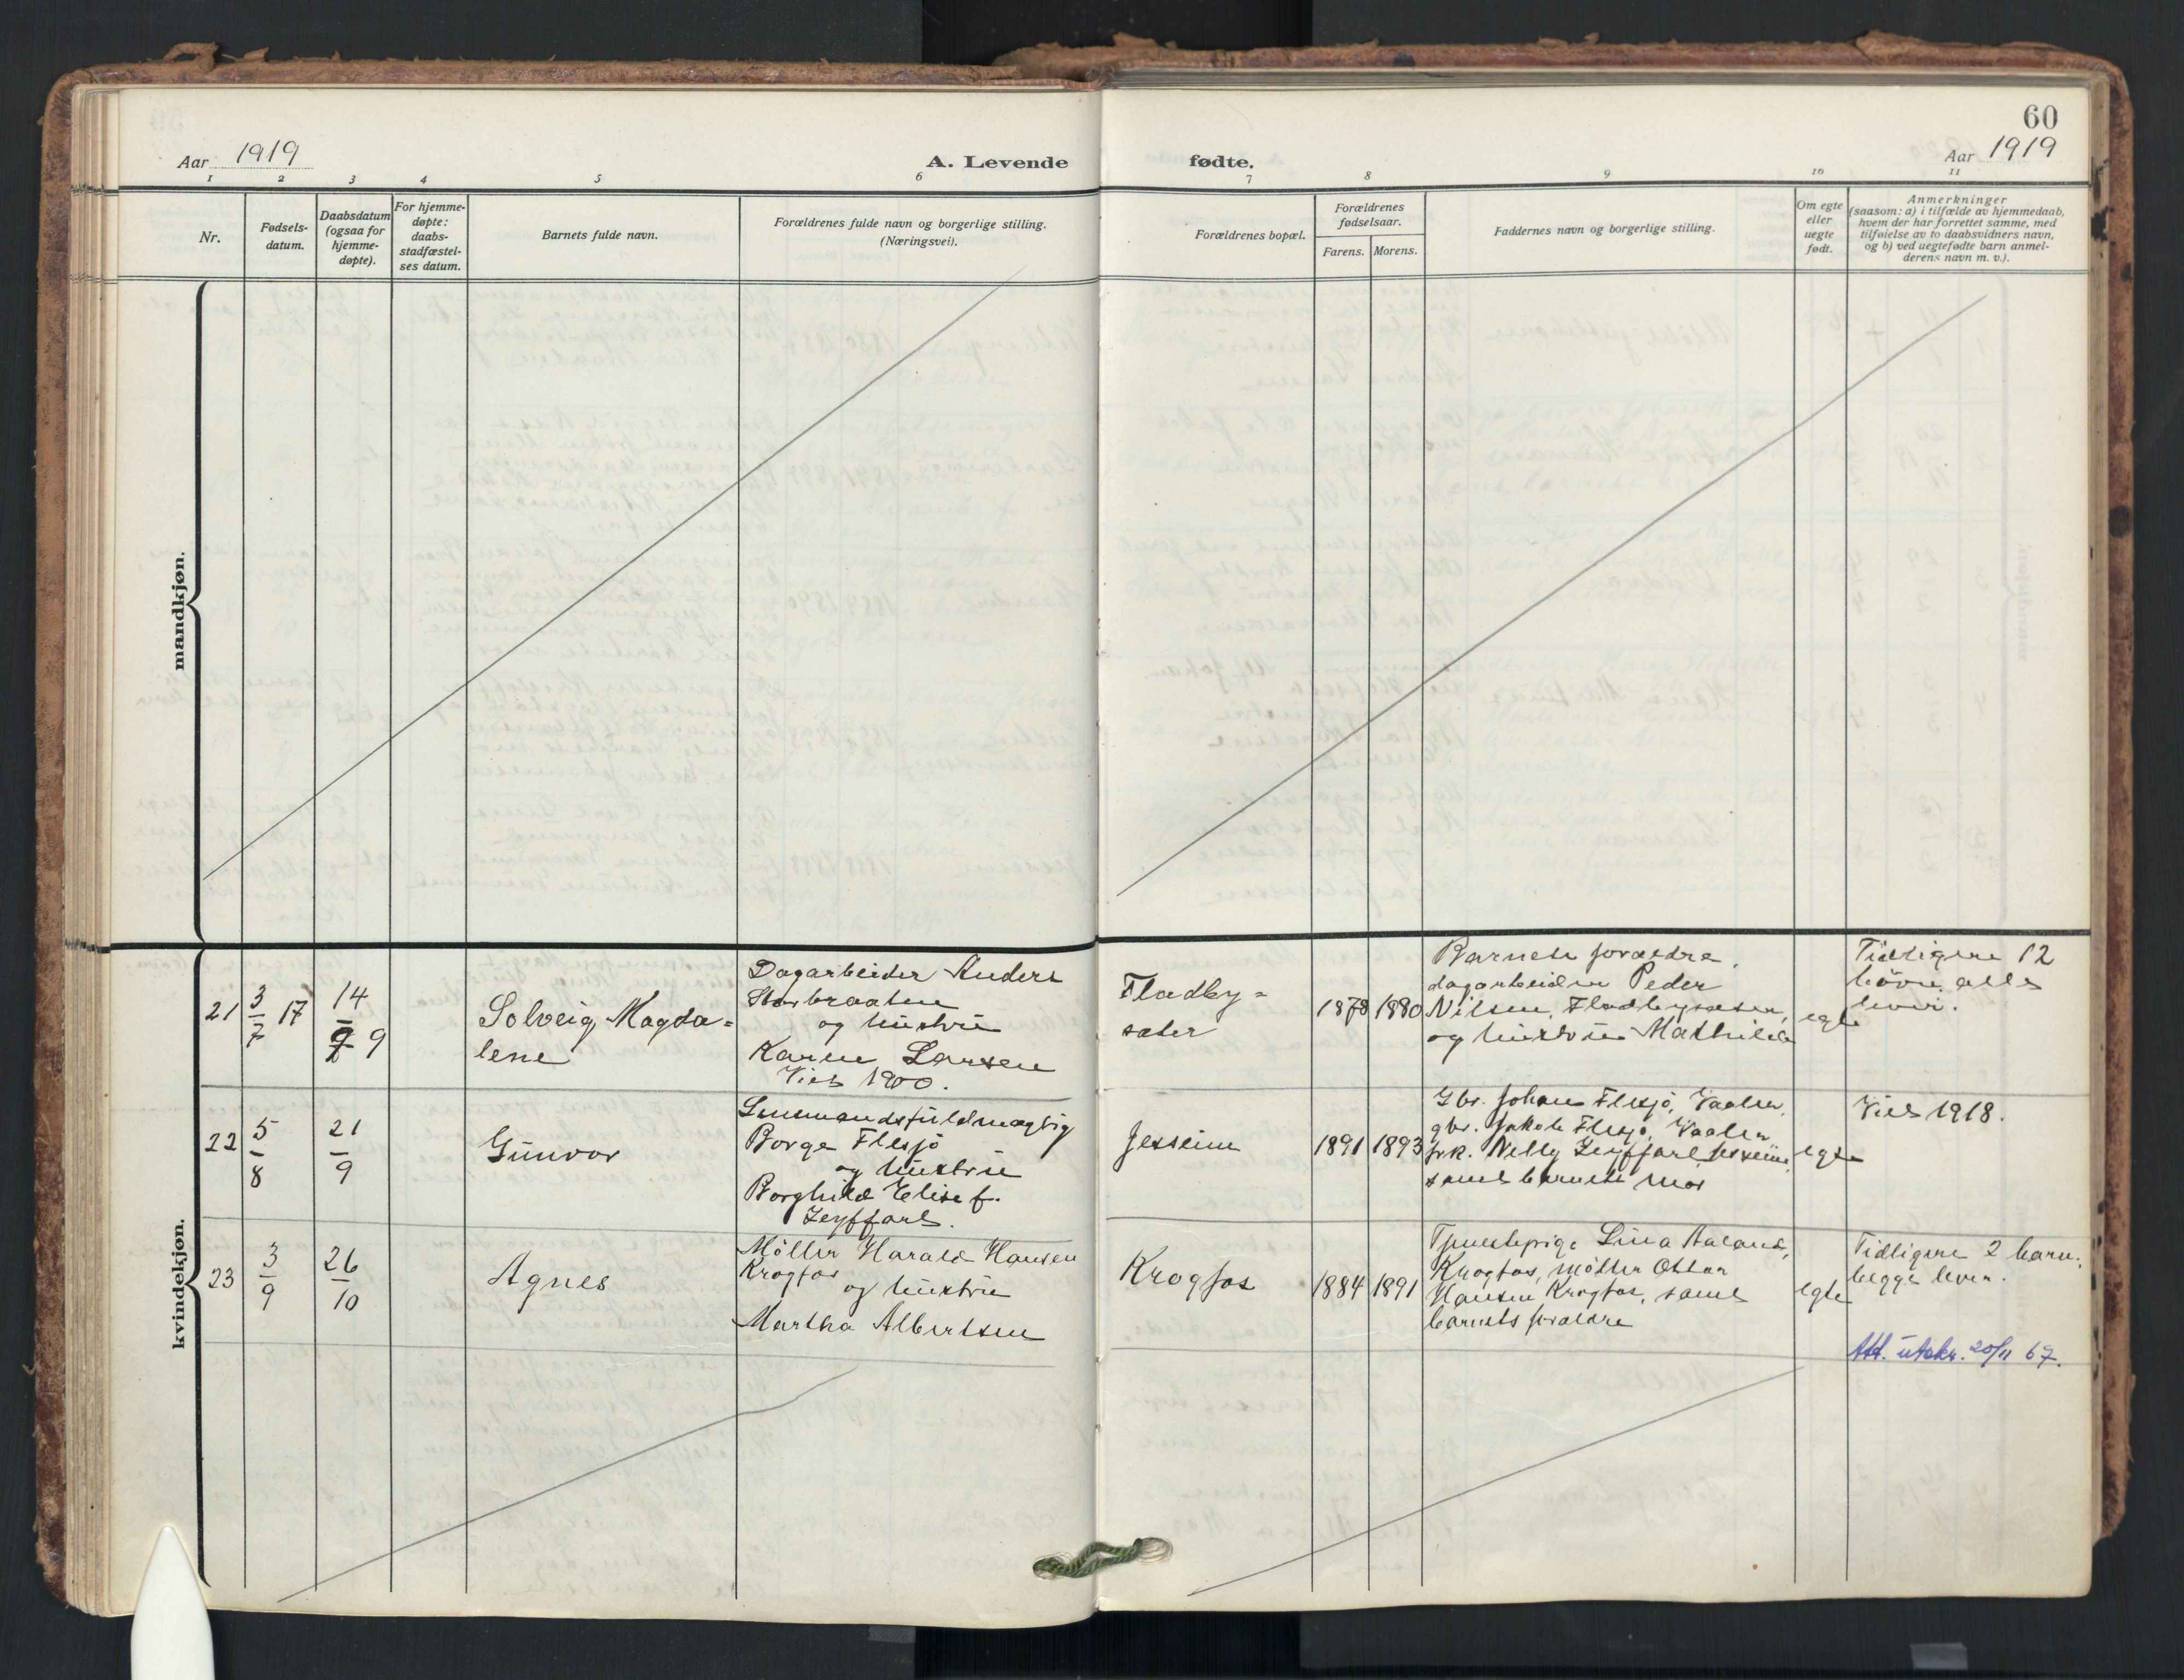 60
Aar 1919
A. Levende
fødte.
Aar 1919
1 2 3 4 5 6 7 8 9 10 11
Nr.
Fødsels-
datum.
Daabsdatum
(ogsaa for
hjemme-
døpte).
For hjemme-
døpte:
daabs-
stadfæstel-
ses datum.
Barnets fulde navn.
Forældrenes fulde navn og borgerlige stilling.
(Næringsvei).
Forældrenes bopæl.
Forældrenes
fødselsaar.
Farens. Morens.
Faddernes navn og borgerlige stilling.
Om egte
eller
uegte
født.
Anmerkninger
(saasom: a) i tilfælde av hjemmedaab,
hvem der har forrettet samme, med
tilføielse av to daabsvidners navn,
og b) ved uegtefødte barn anmel-
derens navn m. v.).
mandkjøn.
kvindekjøn.
21
3/7 17
14/9 9
Solveig Magda=
lene
Dagarbeider Anders
Storbraaten
og hustru
Karen Larsen
Viet 1900.
Fladby=
sæter
1878 1880
Barnets forældre,
dagarbeider Peder
Nilsen, Fladbysæter,
og hustru Mathilde
egte
Tidligere 12
børn, alle
lever.
22
5/8
21/9
Gunvor
Lensmandsfuldmægtig
Borge Flesjø
og hustru
Borghild Elise f.
Zeyffart.
Jesseim
1891 1893
Gbr. Johan Flesjø, Vaaler,
gbr. Jakob Flesjø, Vaaler,
frk. Nelly Zeyffart, Jesseim,
samt barnets mor
egte
Viet 1918.
23
3/9
26/10
Agnes
Møller Harald Hansen
Krogfos
og hustru
Martha Albertsen
Krogfos
1884 1891
Tjenestepige Lina Aaland,
Krogfos, møller Ottar
Hansen Krogfos, samt
barnets forældre
egte
Tidligere 2 barn,
begge lever.
Att. utskr. 20/11 67.